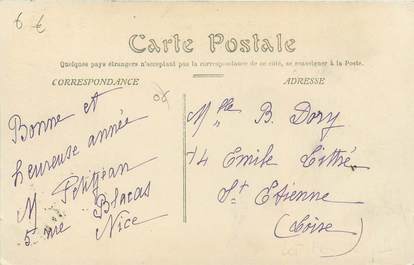 6 €
Carte Postale
Quelques pays étrangers n'acceptant pas la correspondance de ce côté, se renseigner à la Poste.
CORRESPONDANCE
ADRESSE
08
Bonne et
heureuse année
M Petitjean
5 rue Blacas
Nice
Mlle B. Dory
14 Emile Littré
St Etienne
(Loire)